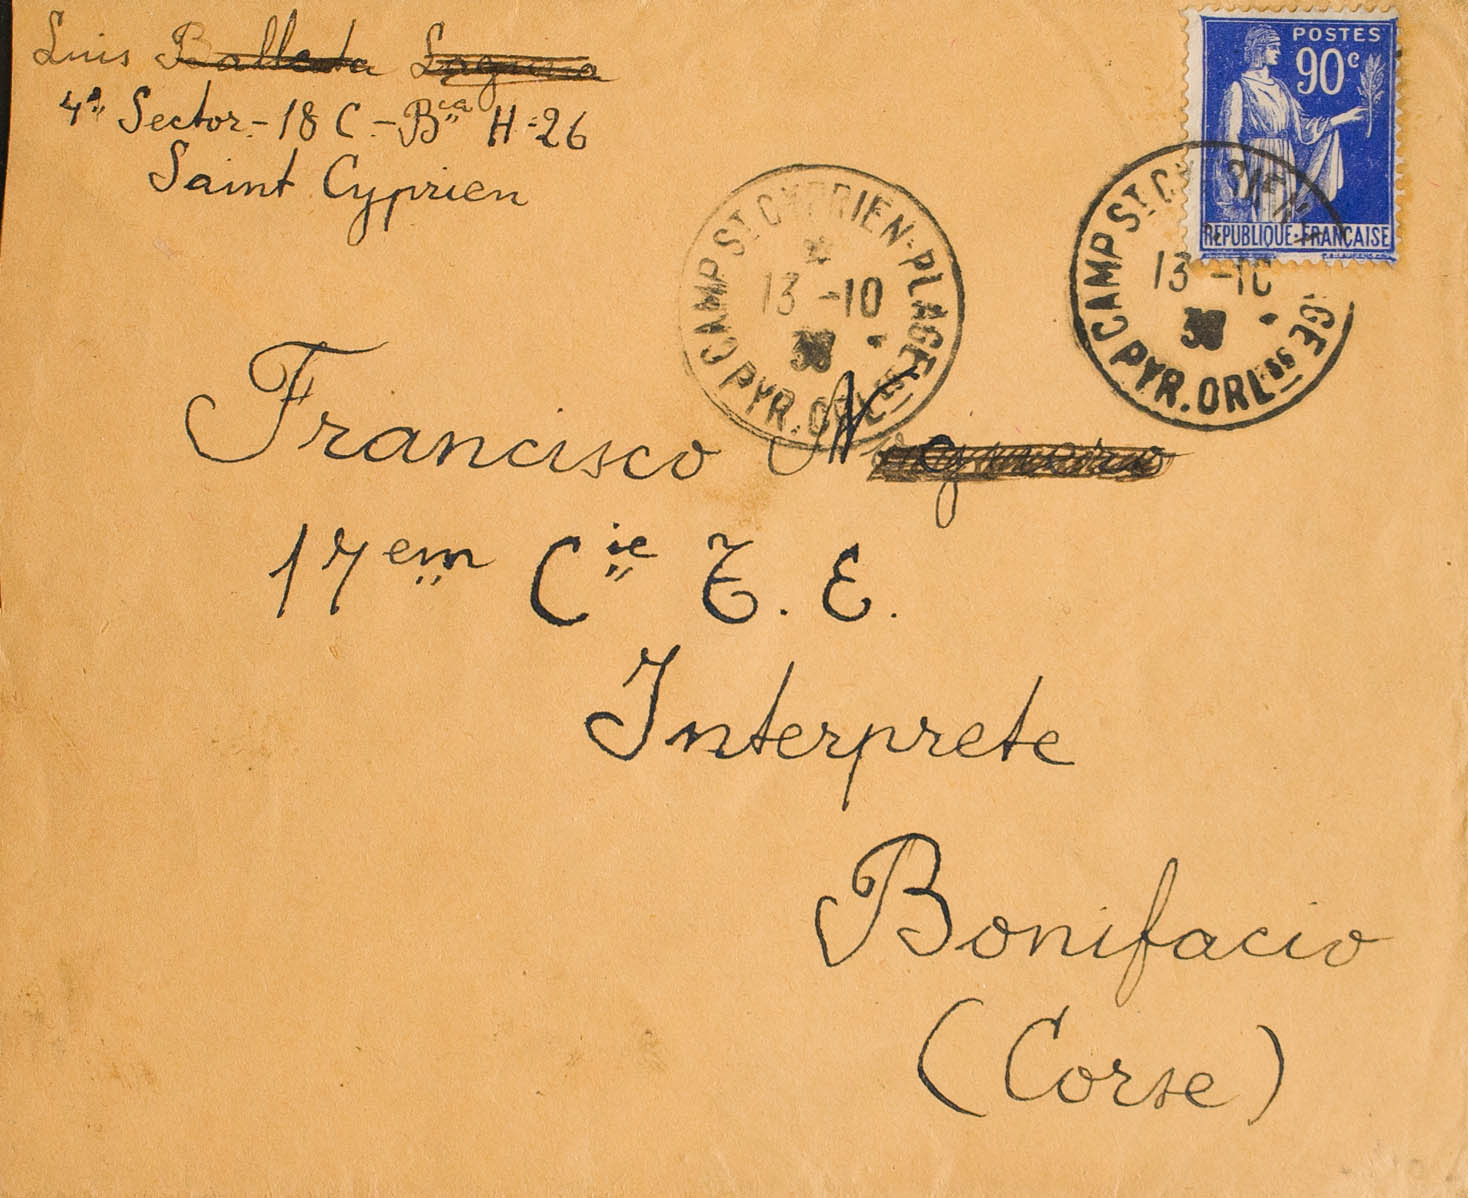 Luis Ballesta Laguna
4ª Sector - 18 C. - Bca H-26
Saint Cyprien
POSTES
90c
REPUBLIQUE·FRANCAISE
CAMP ST CYPRIEN-PLAGE
13-10
PYR. ORLES
CAMP ST CYPRIEN
13-10
PYR. ORLES
Francisco
17em Cie T. E.
Interprete
Bonifacio
(Corse)